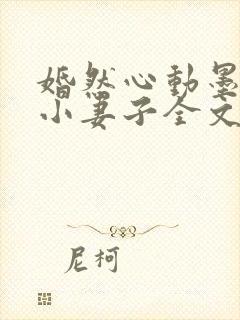 婚然心動墨
小妻子全文
尼柯